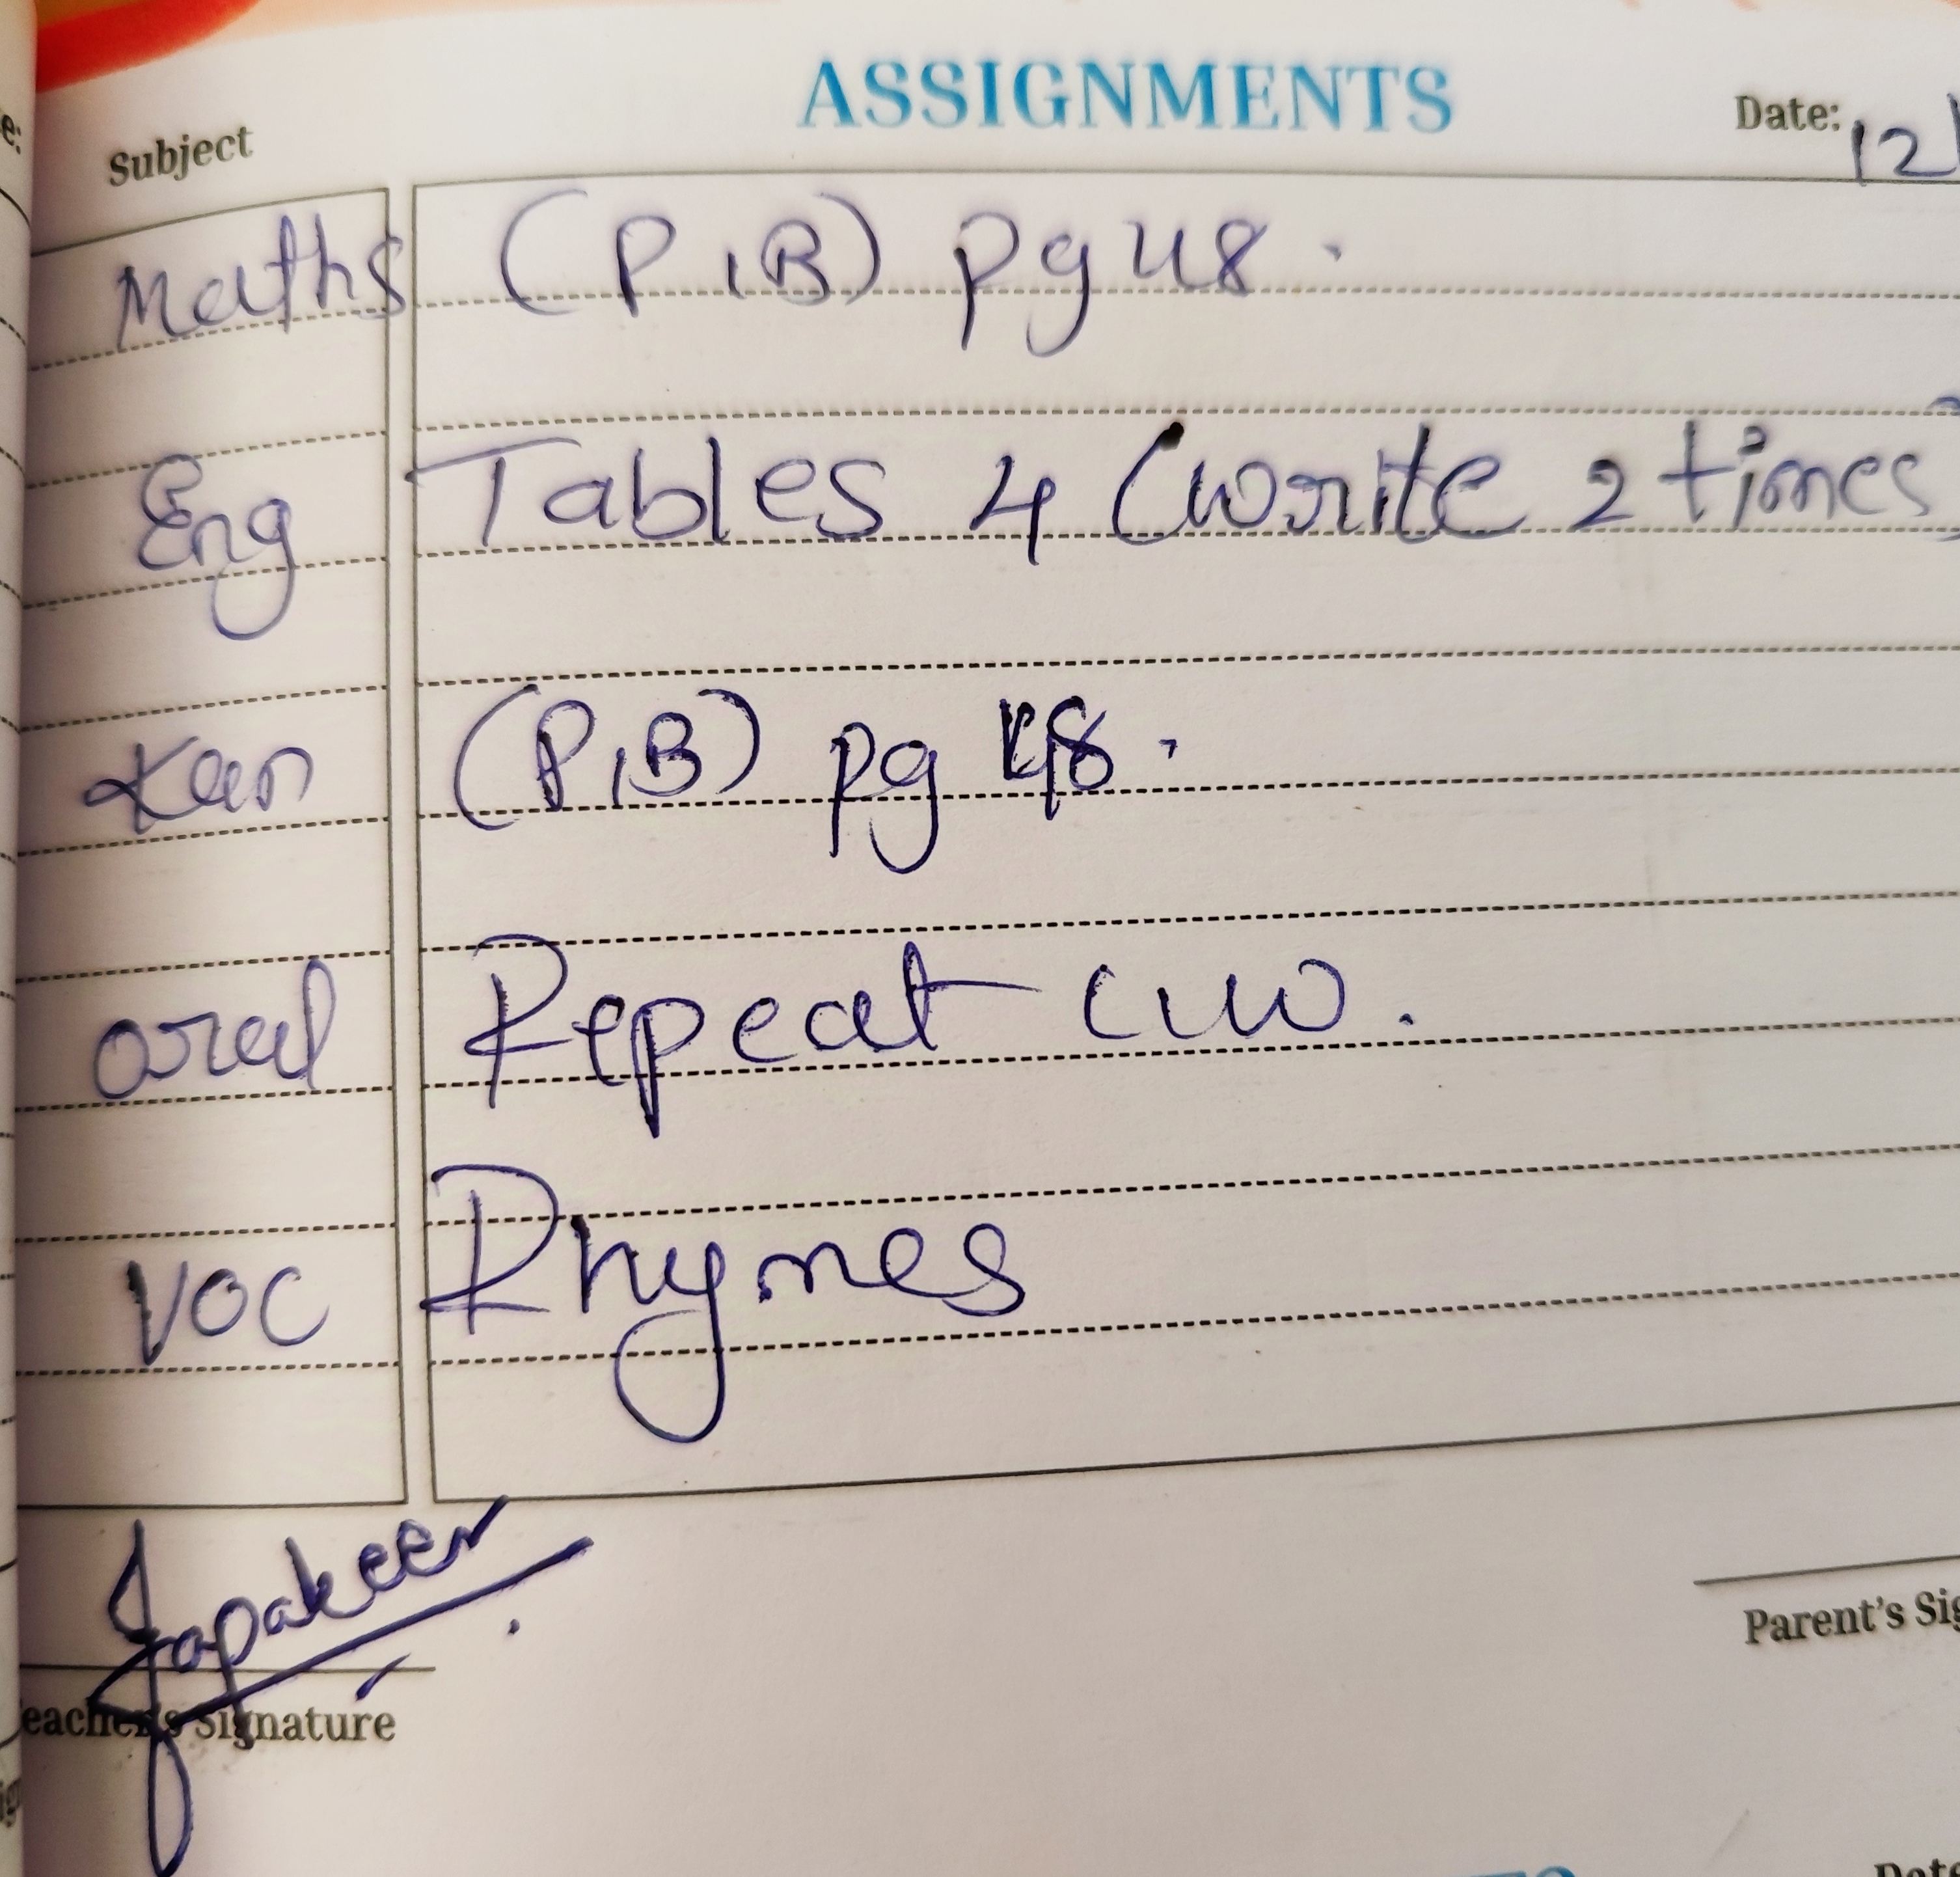 ASSIGNMENTS
Subject
Date: 12
Maths (P,B) pg 48.
Eng Tables 4 (write 2 times)
Kan (P,B) pg 48.
oral Repeat CW.
VOC Rhymes
Parent's Sig
eacher's Signature